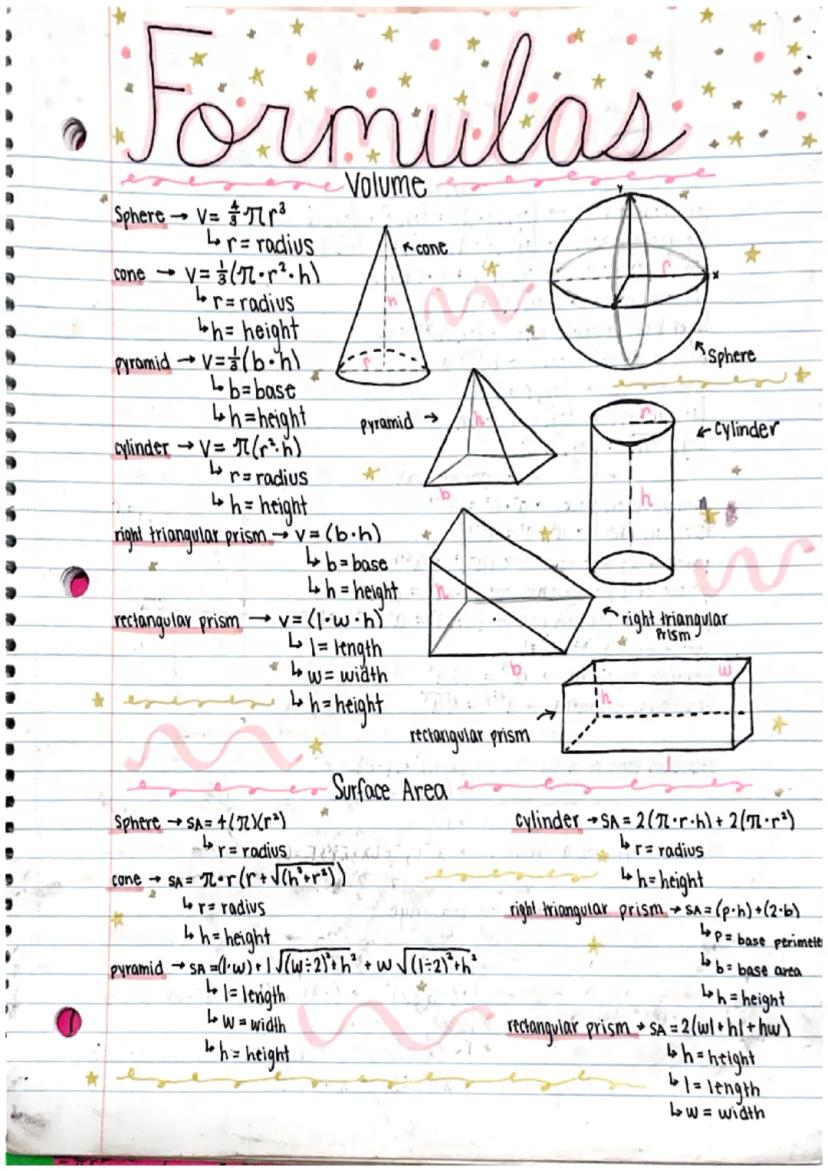 Formulas
Volume
Sphere → V = 4/3 π r³
↳ r = radius
cone → V = 1/3 (π · r² · h)
↳ r = radius
↳ h = height
pyramid → V = 1/3 (b · h)
↳ b = base
↳ h = height
cylinder → V = π(r² · h)
↳ r = radius
↳ h = height
right triangular prism → V = (b · h)
↳ b = base
↳ h = height
rectangular prism → V = (l · w · h)
↳ l = length
↳ w = width
↳ h = height
↖ cone
h
r
Y
r
X
↖ Sphere
pyramid →
h
b
r
← cylinder
h
h
b
↖ right triangular
prism
rectangular prism
w
h
l
Surface Area
Sphere → SA = 4(π)(r²)
↳ r = radius
cone → SA = π · r (r + √(h² + r²))
↳ r = radius
↳ h = height
pyramid → SA = (l · w) + l √(w ÷ 2)² + h² + w √(l ÷ 2)² + h²
↳ l = length
↳ w = width
↳ h = height
Cylinder → SA = 2(π · r · h) + 2(π · r²)
↳ r = radius
↳ h = height
right triangular prism → SA = (p · h) + (2 · b)
↳ p = base perimete
↳ b = base area
↳ h = height
rectangular prism → SA = 2(wl + hl + hw)
↳ h = height
↳ l = length
↳ w = width